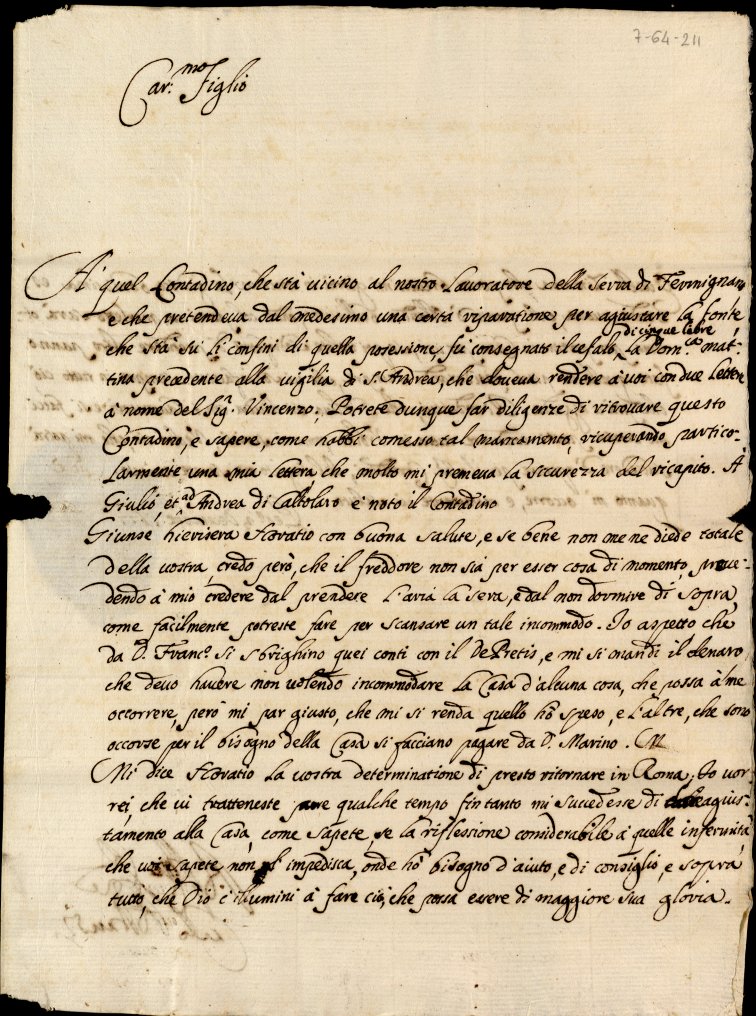 7-64-211
Car.mo Figlio
A' quel Contadino, che stà vicino al nostro Lavoratore della Serra di Fermignano
e che pretendeva dal medesimo una certa riparatione per agiustare la fonte
che stà su li confini di quella posessione, fù consegnato il cefalo di cinque libre la Dom.ca mat-
tina precedente alla vigilia di S. Andrea, che doveva rendere à voi con due Lettere
à nome del Sig.r Vincenzo. Potrete dunque far diligenze di ritrovare questo
Contadino, e sapere, come habbi comesso tal mancamento, ricuperando partico-
larmente una mia lettera che molto mi premeva la sicurezza del ricapito. A'
Giulio, et ad Andrea di Caltolaro è noto il Contadino
Giunse hierisera Horatio con buona salute, e se bene non me ne diede totale
della vostra, credo però, che il freddore non sia per esser cosa di momento, prove-
dendo à mio credere dal prendere l'aria la sera, e dal non dormire di sopra,
come facilmente potreste fare per scansare un tale incommodo. Io aspetto che
da D. Franc.o si sbrighino quei conti con il De Pretis, e mi si mandi il denaro,
che devo havere non volendo incommodare la Casa d'alcuna cosa, che possa à me
occorrere, però mi par giusto, che mi si renda quello hò speso, e l'altre, che sono
occorse per il bisogno della Casa si facciano pagare da D. Marino.
Mi dice Horatio la vostra determinatione di presto ritornare in Roma; Io vor-
rei, che vi tratteneste pure qualche tempo fin tanto mi succedesse di agius-
tamento alla Casa, come sapete, se la riflessione considerabile à quelle infermità
che voi sapete non l'impedisca, onde hò bisogno d'aiuto, e di consiglio, e sopra
tutto, che Dio c'illumini à fare ciò, che possa essere di maggiore sua gloria.